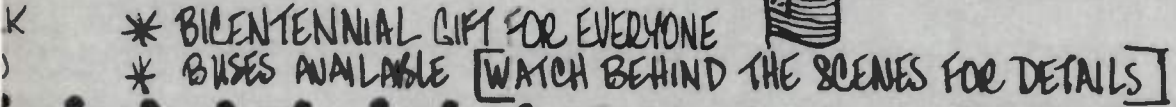 K * BICENTENNIAL GIFT FOR EVERYONE
* BUSES AVAILABLE [WATCH BEHIND THE SCENES FOR DETAILS]